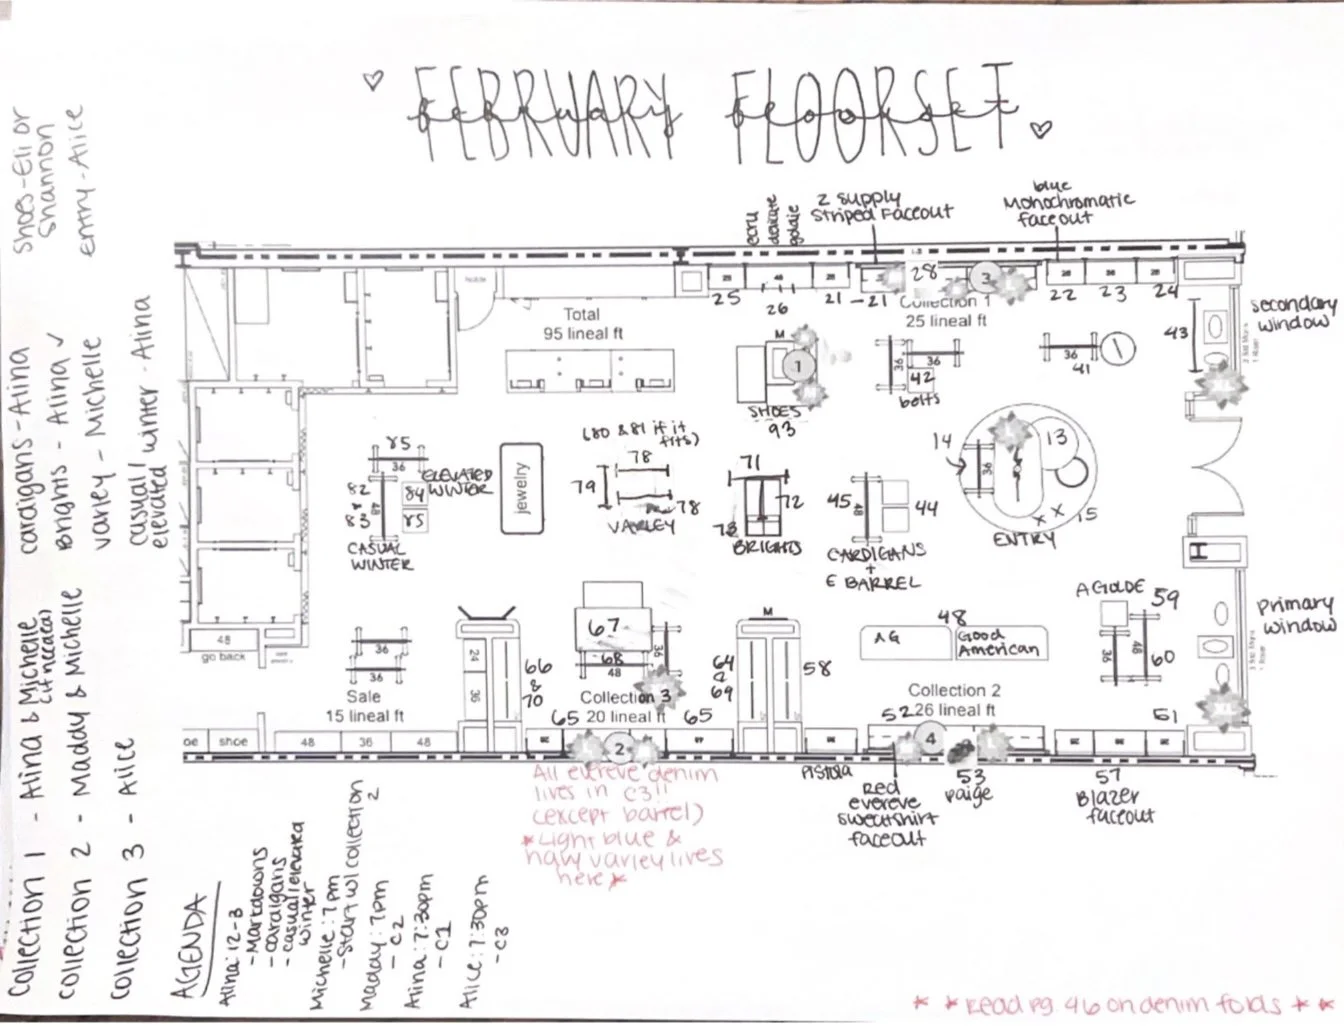 FEBRUARY FLOORSET
february floorset
shoes - Eli or
Shannon
entry - Alice
cardigans - Alina
Brights - Alina ✓
varley - Michelle
casual/
elevated winter - Alina
Collection 1 - Alina & Michelle
(if needed)
Collection 2 - Maddy & Michelle
Collection 3 - Alice
AGENDA
Alina: 12-3
- Markdowns
- cardigans
- casual/elevated
winter
Michelle: 7pm
- Start w/ collection
2
Maddy: 7pm
- C2
Alina: 7:30pm
- C1
Alice: 7:30pm
- C3
ecru
delicate
goldie
2 supply
Striped Faceout
blue
Monochromatic
faceout
25
26
21
-21
28
3
22
23
24
Collection 1
25 lineal ft
Total
95 lineal ft
secondary
window
43
M
1
SHOES
93
36
36
42
belts
36
41
14
36
13
15
ENTRY
(80 & 81 if it
fits)
78
79
78
VARLEY
71
72
73
BRIGHTS
45
48
44
CARDIGANS
+
E BARREL
jewelry
85
36
ELEVATED
WINTER
82
83
48
84
85
CASUAL
WINTER
48
go back
36
36
Sale
15 lineal ft
shoe
48
36
48
24
36
66
&
70
67
68
48
36
Collection 3
20 lineal ft
65
65
2
M
64
69
58
48
AG
Good
American
Collection 2
26 lineal ft
52
4
AGOLDE
59
36
48
60
61
primary
window
PISTOLA
Red
evereve
sweatshirt
faceout
53
paige
57
Blazer
faceout
All evereve denim
lives in C3!!
(except barrel)
* Light blue &
navy varley lives
here *
* * Read pg. 46 on denim folds * *